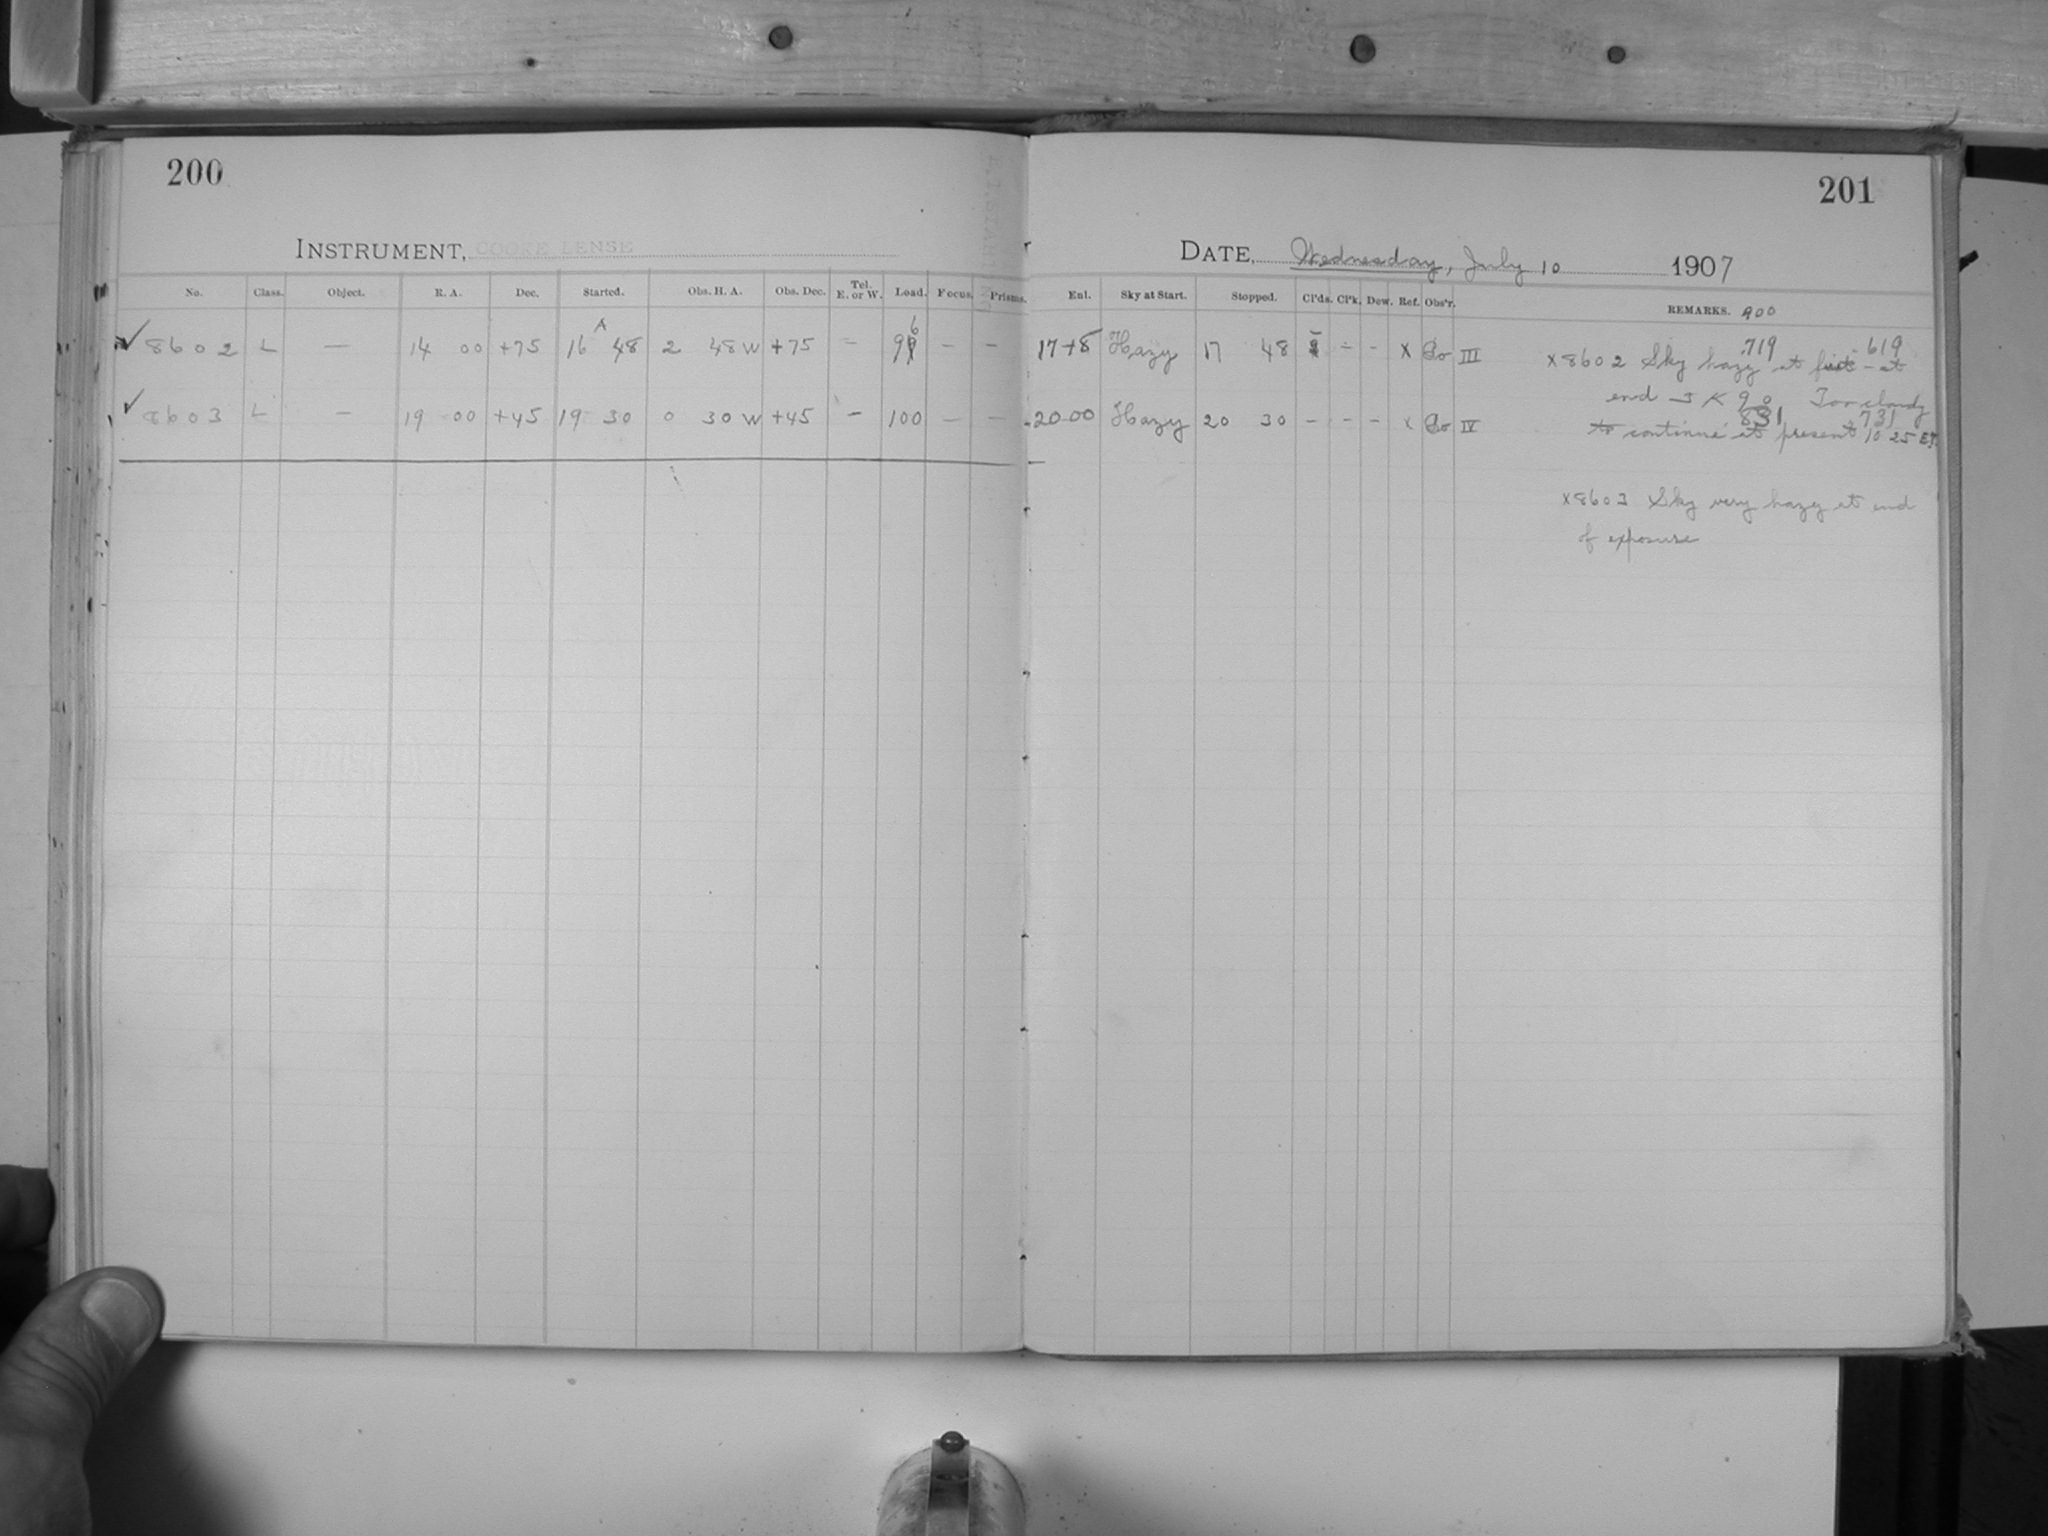 200
INSTRUMENT, COOKE LENSE
No. Class. Object. R. A. Dec. Started. Obs. H. A. Obs. Dec. Tel. E. or W. Load. Focus. Prisms.
✓ 8602 L — 14 00 +75 16 48 2 48 W +75 – 99 — —
✓ 8603 L — 19 00 +45 19 30 0 30 W +45 – 100 — —
201
DATE, Wednesday, July 10 1907
Enl. Sky at Start. Stopped. Cl'ds. Cl'k. Dew. Ref. Obs'r. REMARKS. 900
17+8 Hazy 17 48 – – X III
20.00 Hazy 20 30 – – – X IV
.719 619
X8602 Sky hazy at first – at
end Too cloudy
831 .731
continue at present 10 25 E.T.
X8603 Sky very hazy at end
of exposure